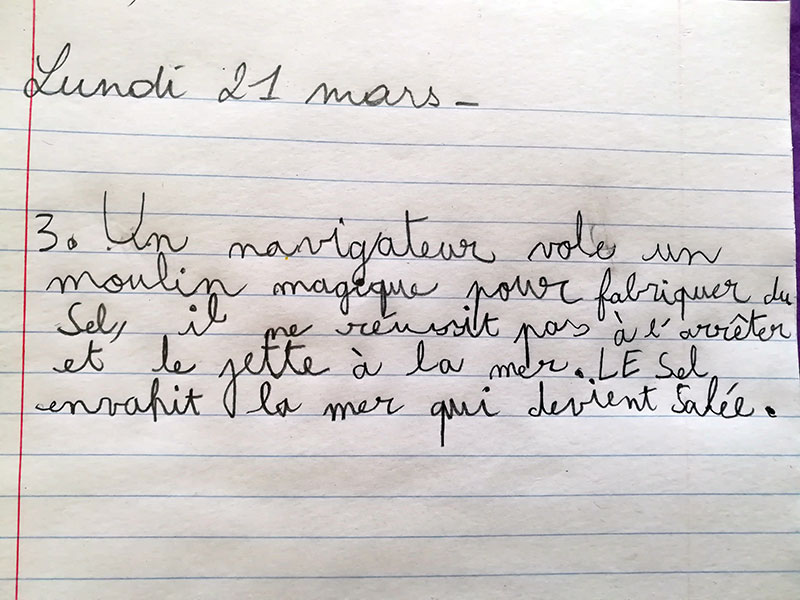 Lundi 21 mars_
3. Un navigateur vole un
moulin magique pour fabriquer du
Sel, il ne réussit pas à l'arrêter
et le jette à la mer. LE Sel
envahit la mer qui devient Salée.